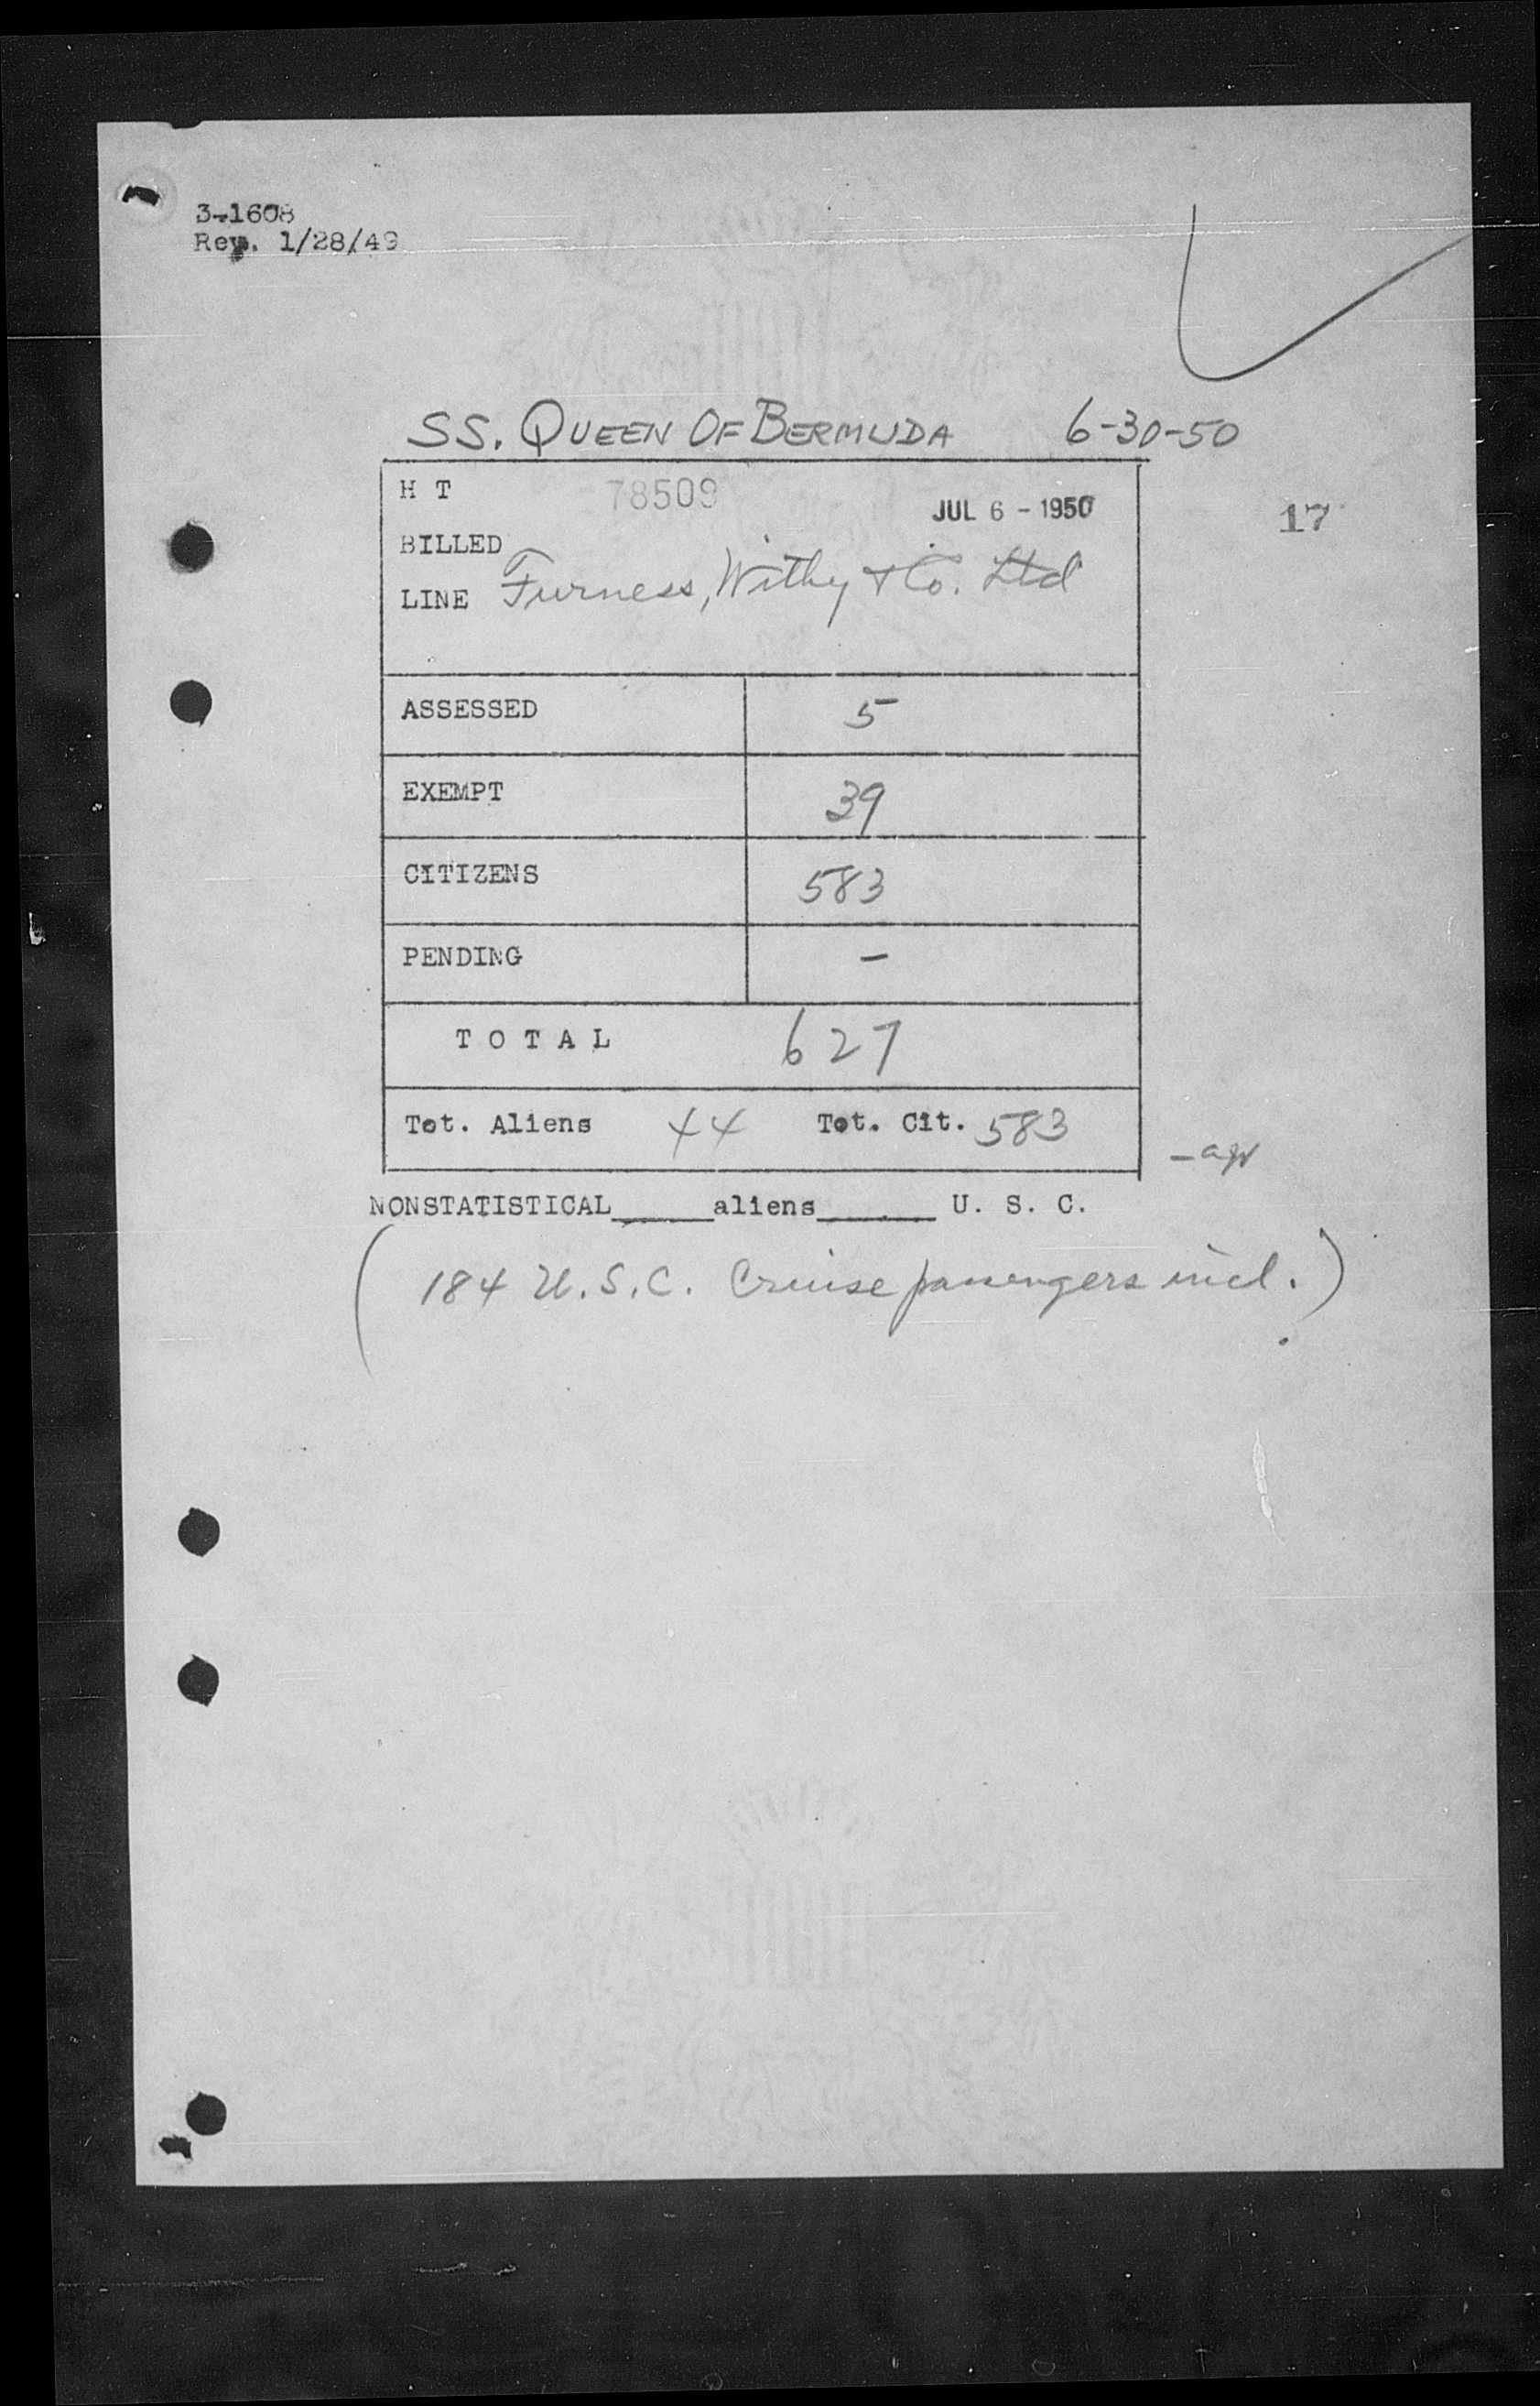 3-1608
Rev. 1/28/49
SS. QUEEN OF BERMUDA 6-30-50
H T 78509 JUL 6 - 1950 17
BILLED
LINE Furness, Withy & Co. Ltd
ASSESSED 5
EXEMPT 39
CITIZENS 583
PENDING -
T O T A L 627
Tot. Aliens 44 Tot. Cit. 583
NONSTATISTICAL_____aliens______ U. S. C.
(184 U.S.C. Cruise passengers incl.)